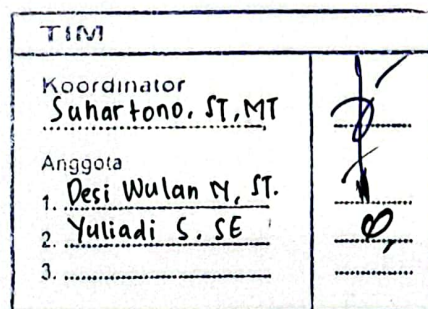 TIM
Koordinator
Suhartono, ST, MT
Anggota
1. Desi Wulan N, ST.
2. Yuliadi S. SE
3.